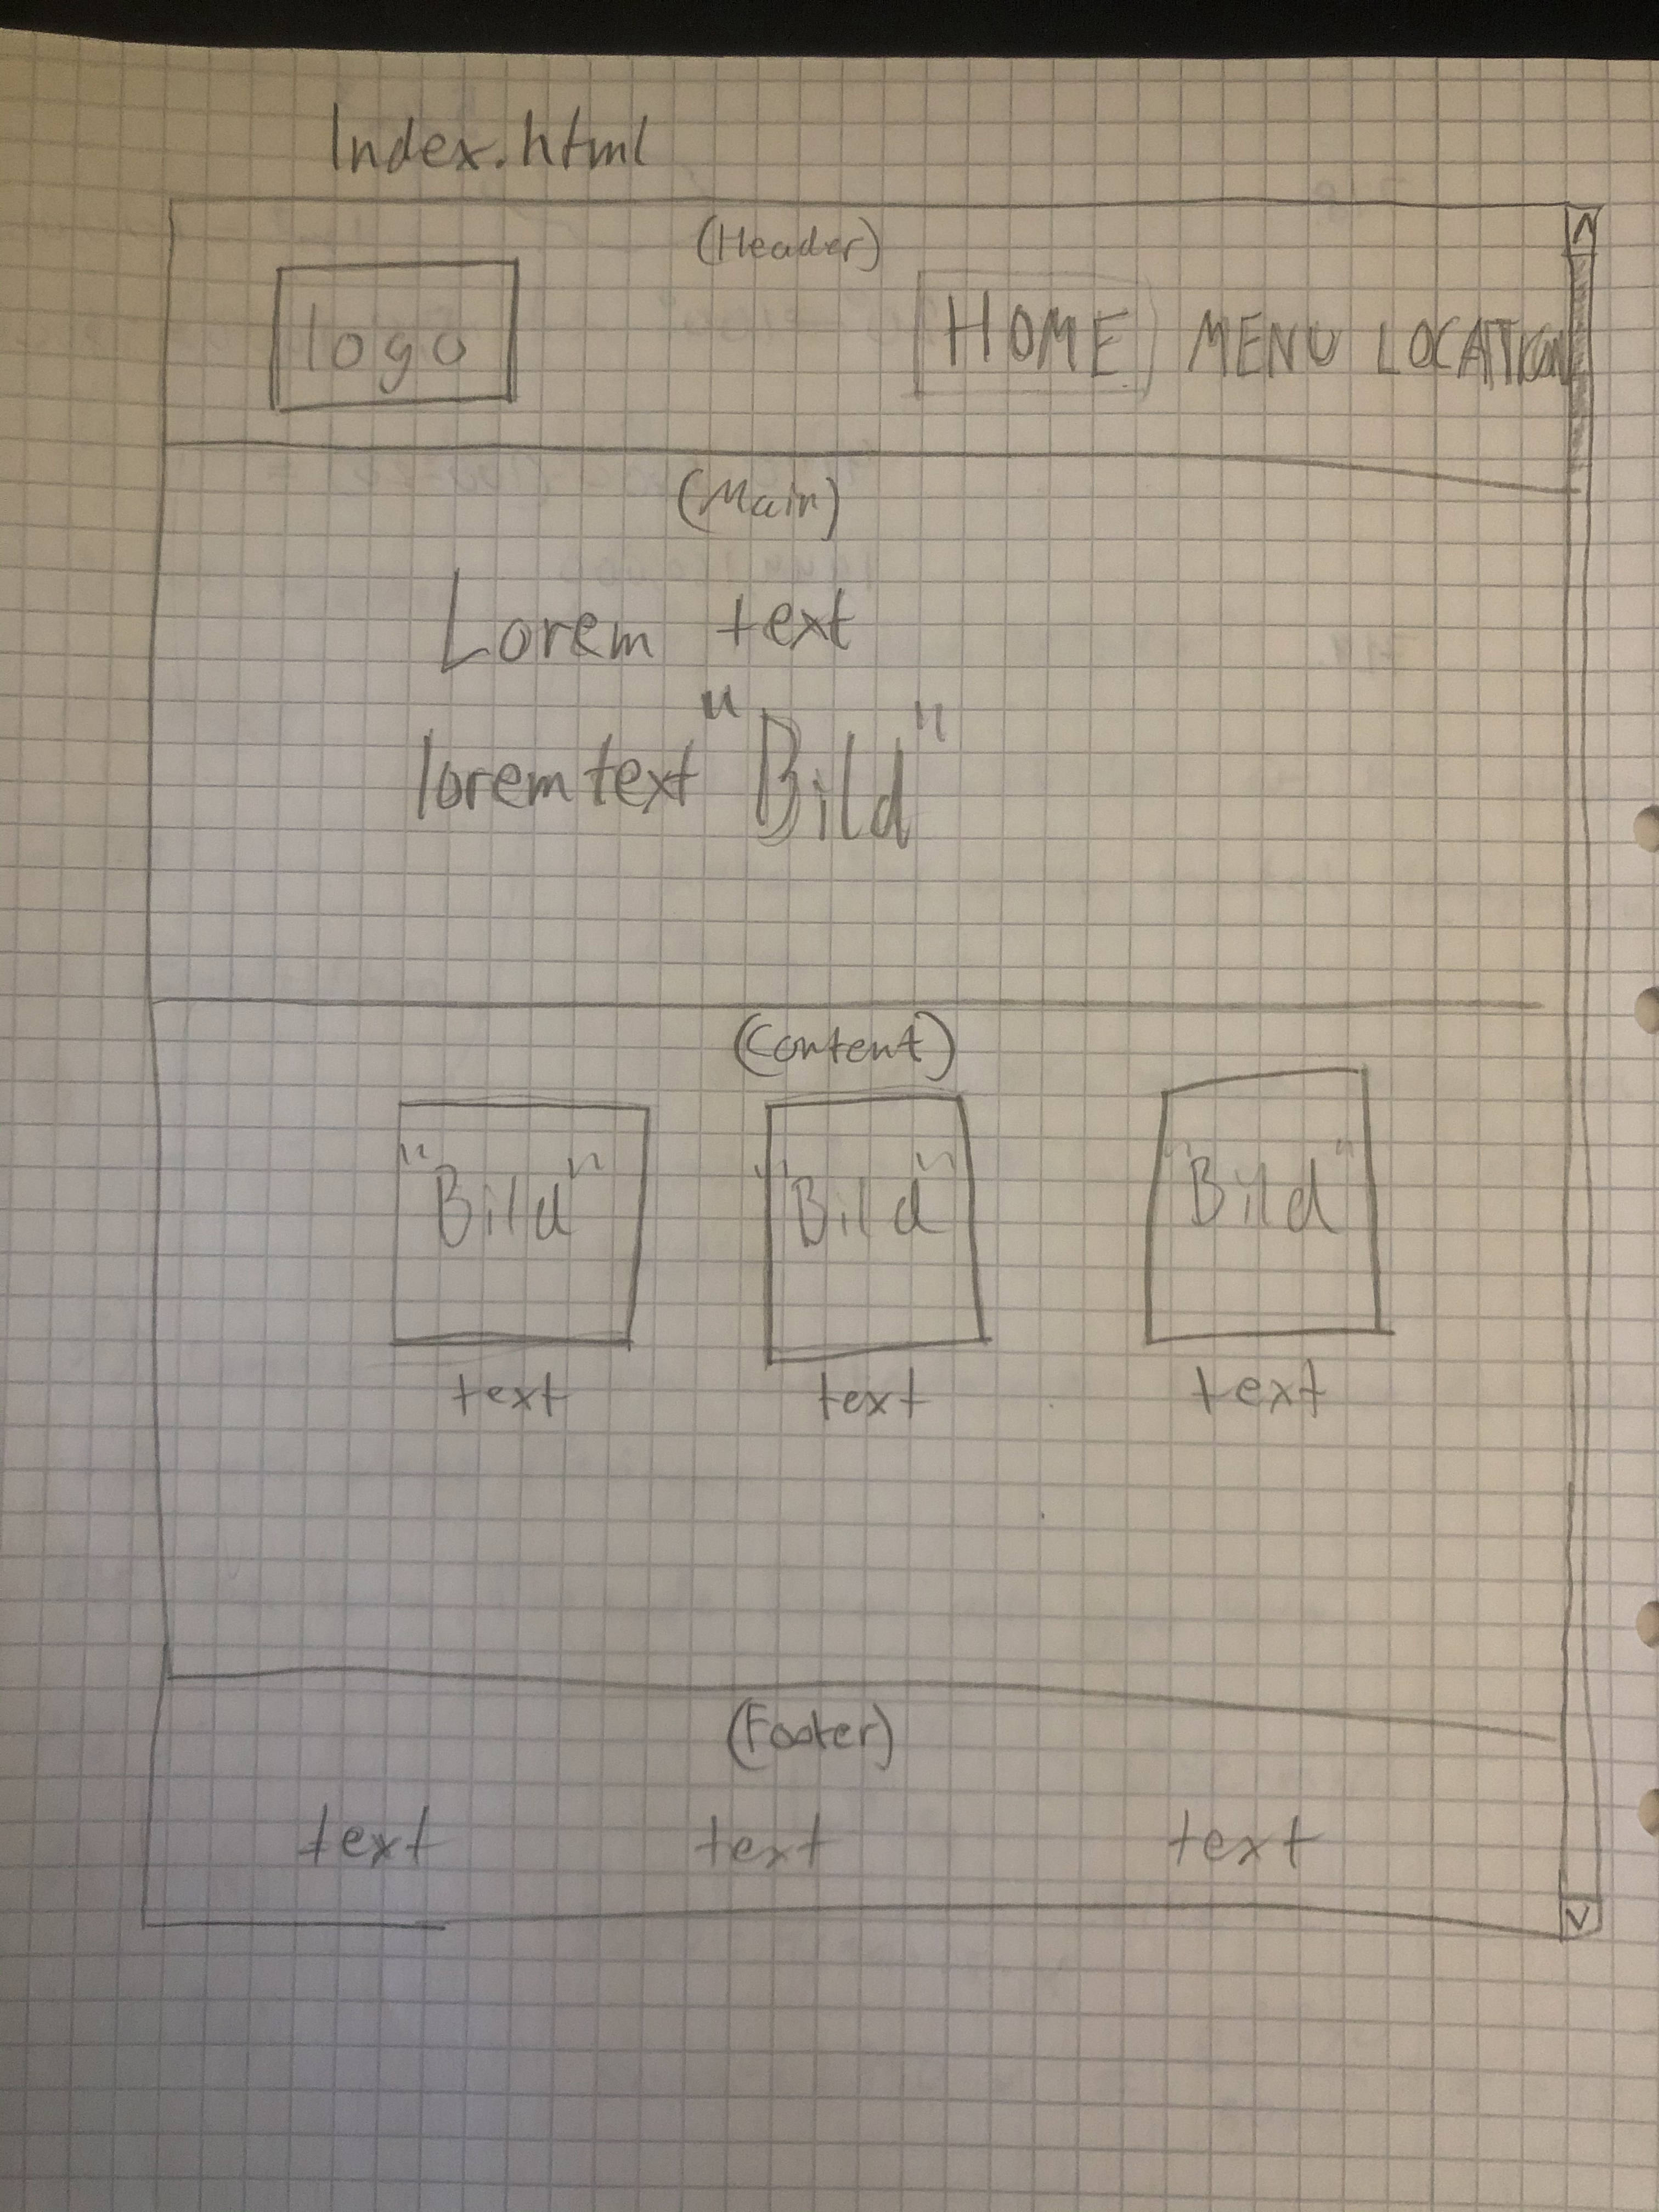 Index.html
(Header)
logo HOME MENU LOCATION
(Main)
Lorem text
lorem text "Bild"
(Content)
"Bild" "Bild" "Bild"
text text text
(Footer)
text text text